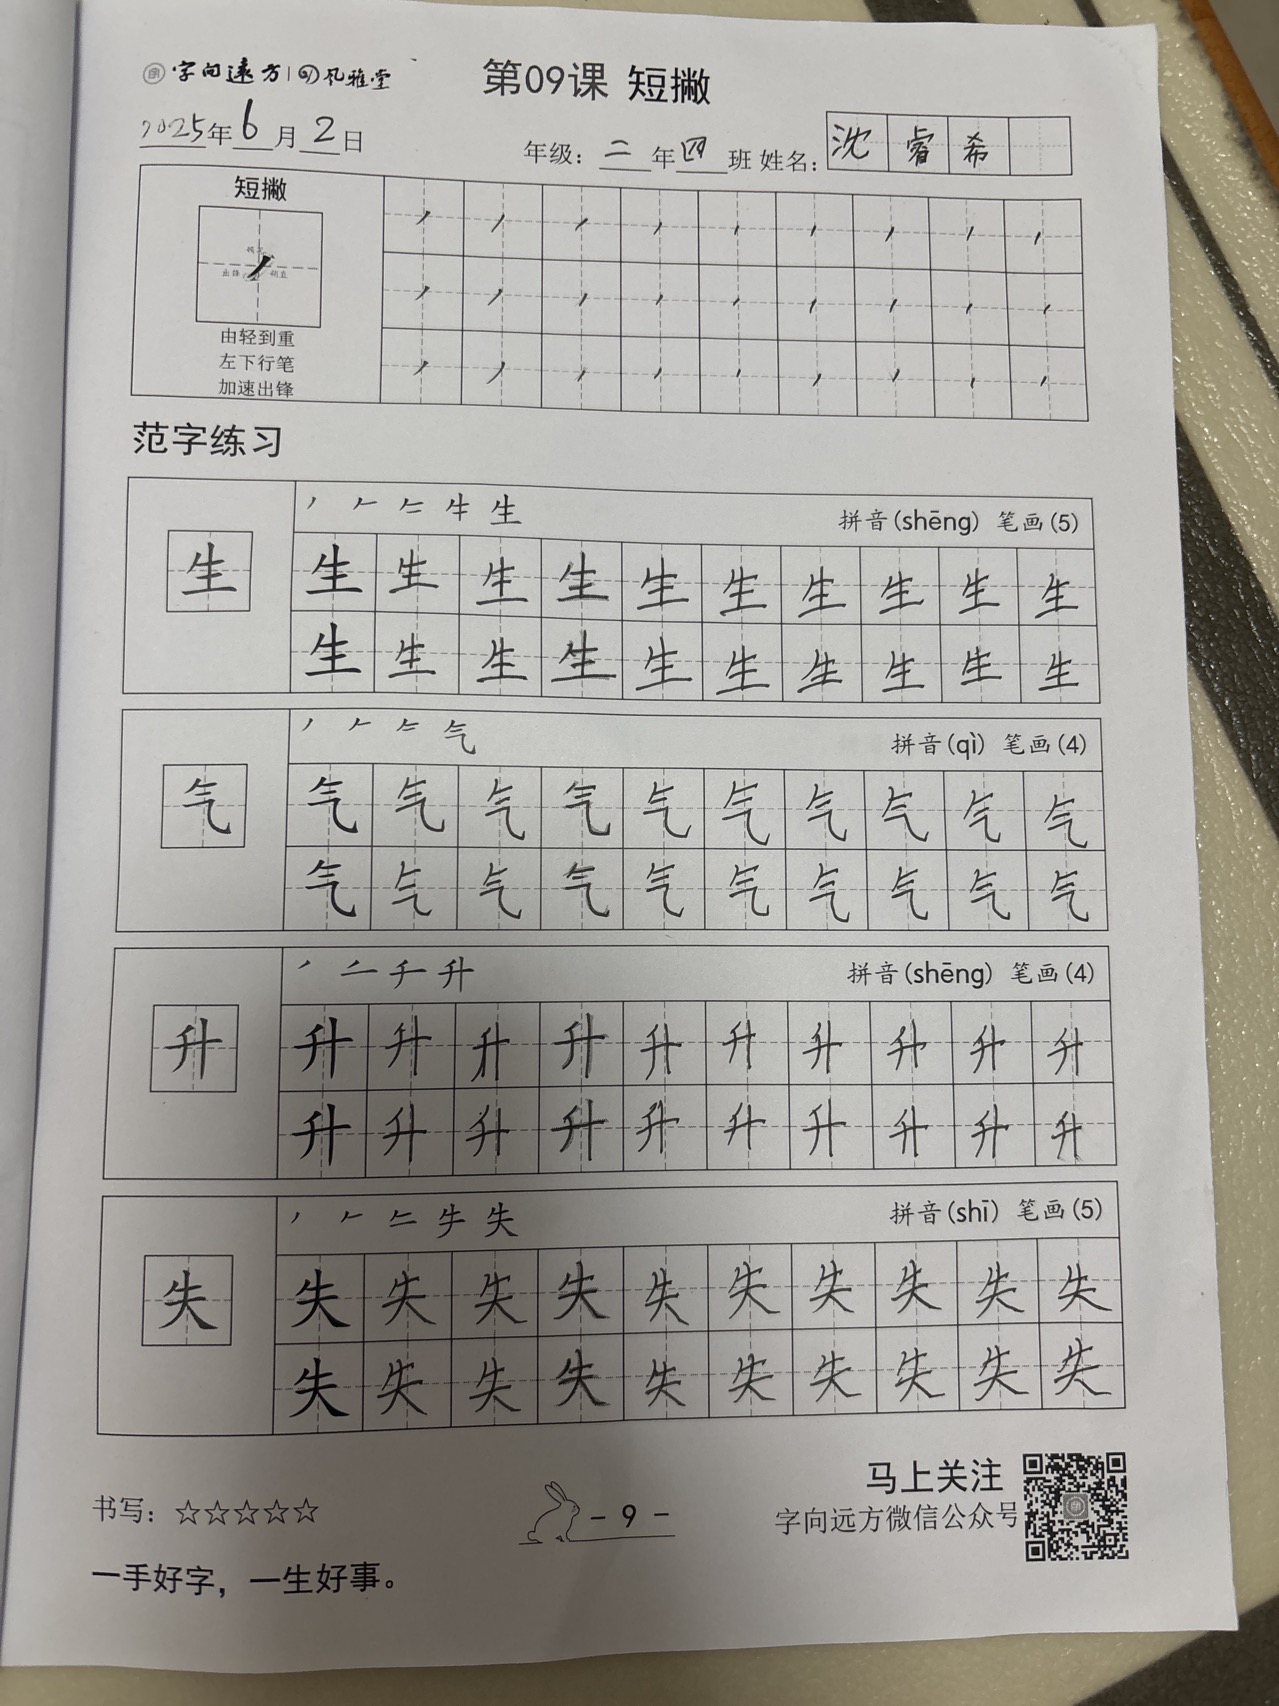 字向远方 | 风雅堂
第09课 短撇
2025年6月2日
年级：二年四班 姓名：沈睿希
短撇
由轻到重
左下行笔
加速出锋
范字练习
生 拼音(shēng) 笔画(5)
生 生 生 生 生 生 生 生 生 生 生
生 生 生 生 生 生 生 生 生 生
气 拼音(qì) 笔画(4)
气 气 气 气 气 气 气 气 气 气 气
气 气 气 气 气 气 气 气 气 气
升 拼音(shēng) 笔画(4)
升 升 升 升 升 升 升 升 升 升 升
升 升 升 升 升 升 升 升 升 升
失 拼音(shī) 笔画(5)
失 失 失 失 失 失 失 失 失 失 失
失 失 失 失 失 失 失 失 失 失
书写：☆☆☆☆☆
- 9 -
马上关注
字向远方微信公众号
一手好字，一生好事。